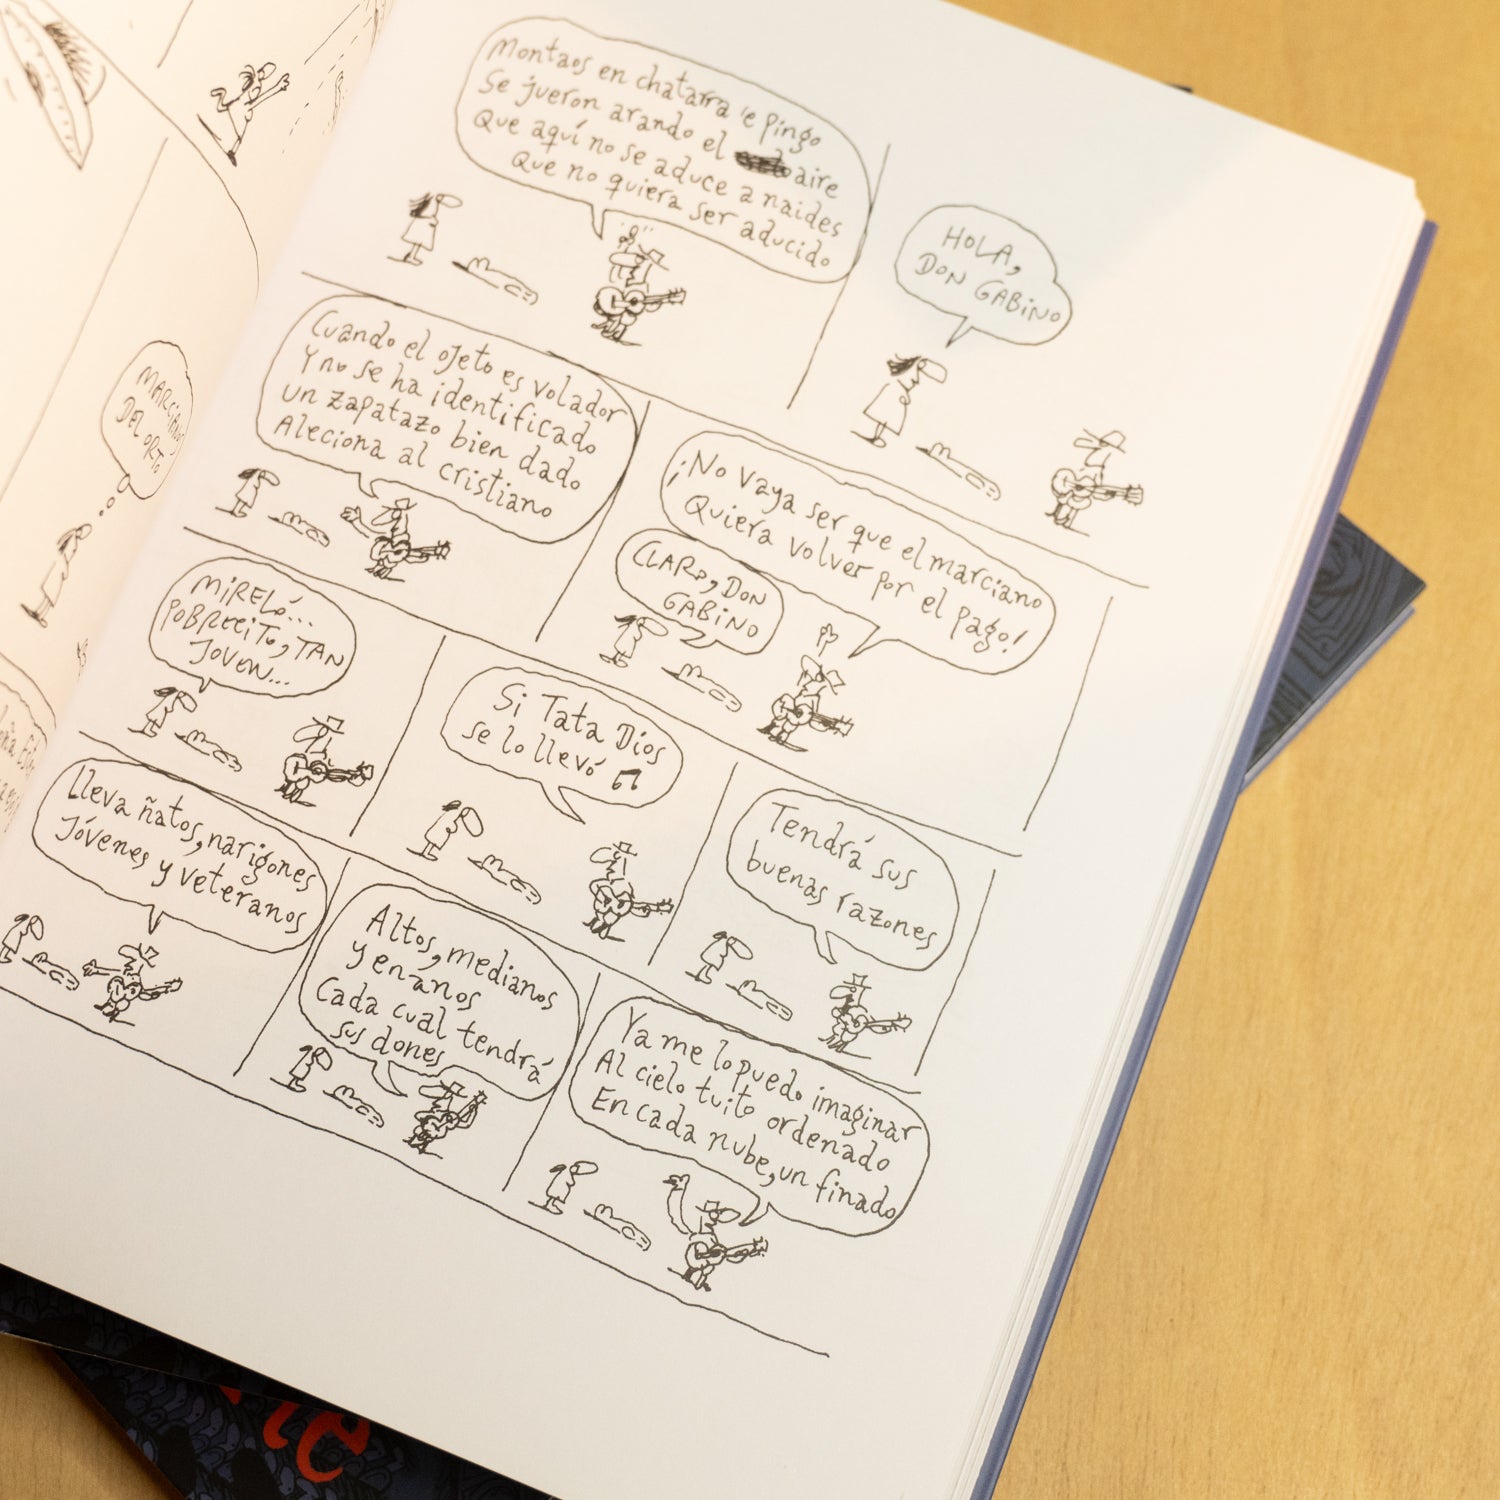 MARCIANOS
DEL ORTO
Montaos en chatarra 'e pingo
Se jueron arando el aire
Que aquí no se aduce a naides
Que no quiera ser aducido
HOLA,
DON GABINO
Cuando el ojeto es volador
Y no se ha identificado
un zapatazo bien dado
Aleciona al cristiano
¡No vaya ser que el marciano
Quiera volver por el pago!
CLARO, DON
GABINO
MIRELÓ...
POBRECITO, TAN
JOVEN...
Si Tata Dios
se lo llevó
Tendrá sus
buenas razones
Lleva ñatos, narigones
Jóvenes y veteranos
Altos, medianos
y enanos
Cada cual tendrá
sus dones
Ya me lo puedo imaginar
Al cielo tuito ordenado
En cada nube, un finado